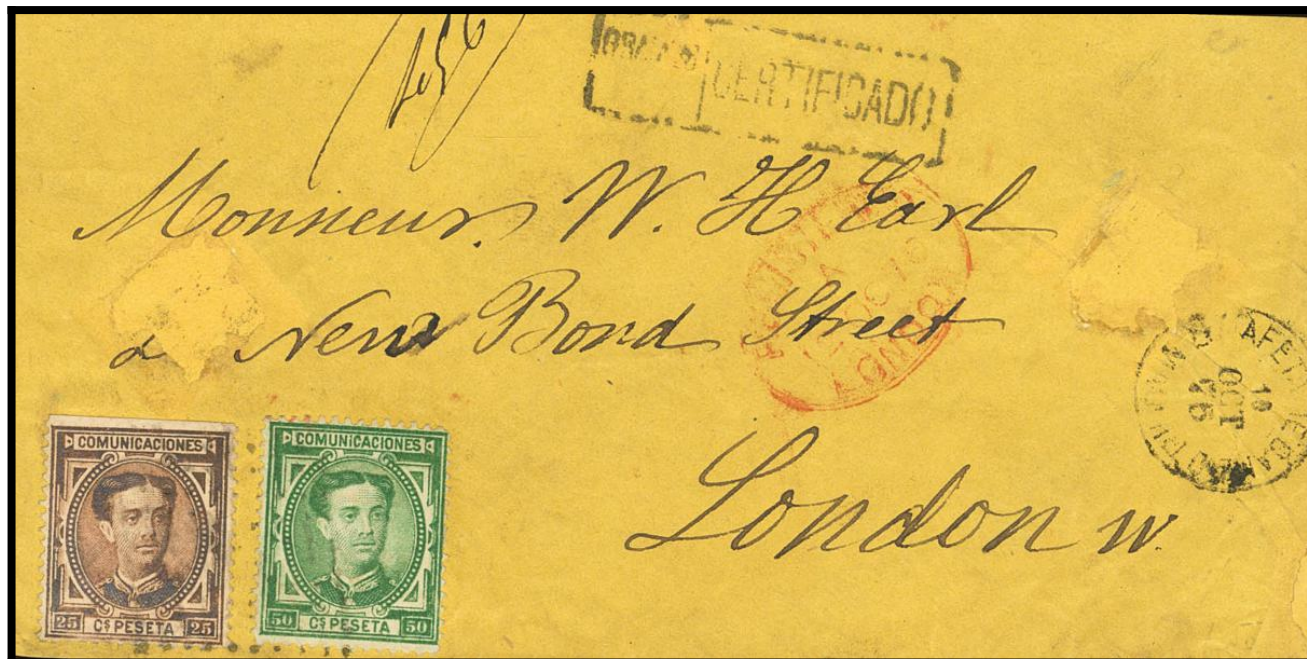 CERTIFICADO
Monsieur. W. H Earl
2 New Bond Street
London W.
LONDON
16
OUT
76
COMUNICACIONES
25 Cs PESETA 25
COMUNICACIONES
50 Cs PESETA 50